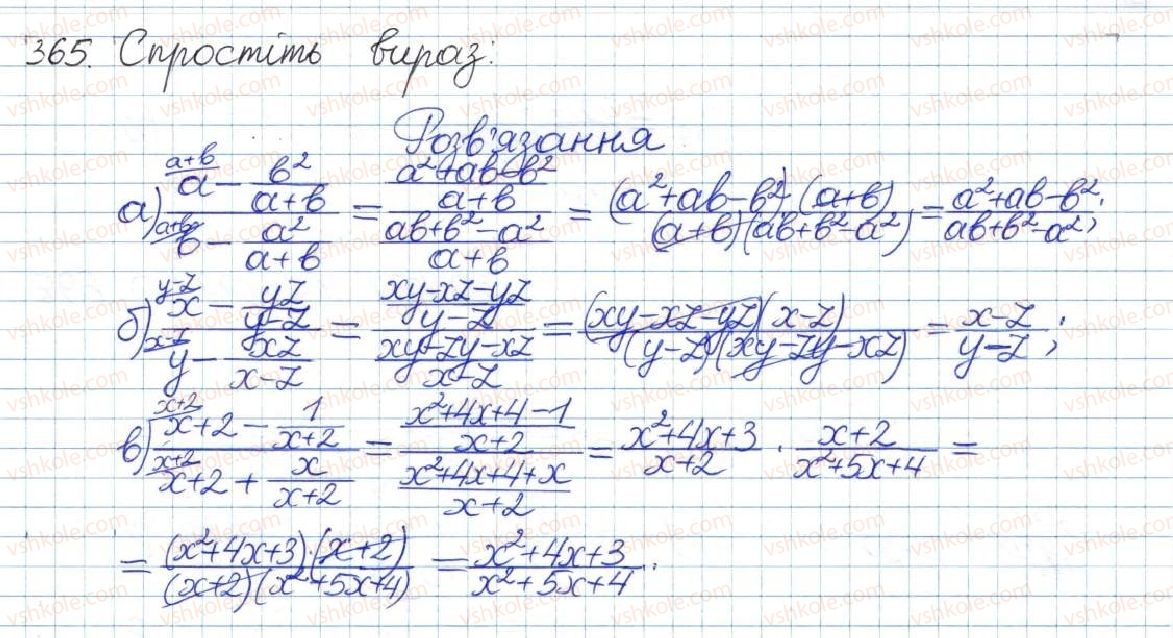 365. Спростіть вираз:
Розв'язання
а) (a - b²/(a+b)) / (b - a²/(a+b)) = ((a²+ab-b²)/(a+b)) / ((ab+b²-a²)/(a+b)) = (a²+ab-b²)·(a+b) / (a+b)(ab+b²-a²) = (a²+ab-b²)/(ab+b²-a²);
б) (x - yz/(y-z)) / (y - xz/(x-z)) = ((xy-xz-yz)/(y-z)) / ((xy-zy-xz)/(x-z)) = (xy-xz-yz)(x-z) / (y-z)(xy-zy-xz) = (x-z)/(y-z);
в) (x+2 - 1/(x+2)) / (x+2 + x/(x+2)) = ((x²+4x+4-1)/(x+2)) / ((x²+4x+4+x)/(x+2)) = (x²+4x+3)/(x+2) · (x+2)/(x²+5x+4) =
= (x²+4x+3)·(x+2) / (x+2)(x²+5x+4) = (x²+4x+3)/(x²+5x+4).
vshkole.com